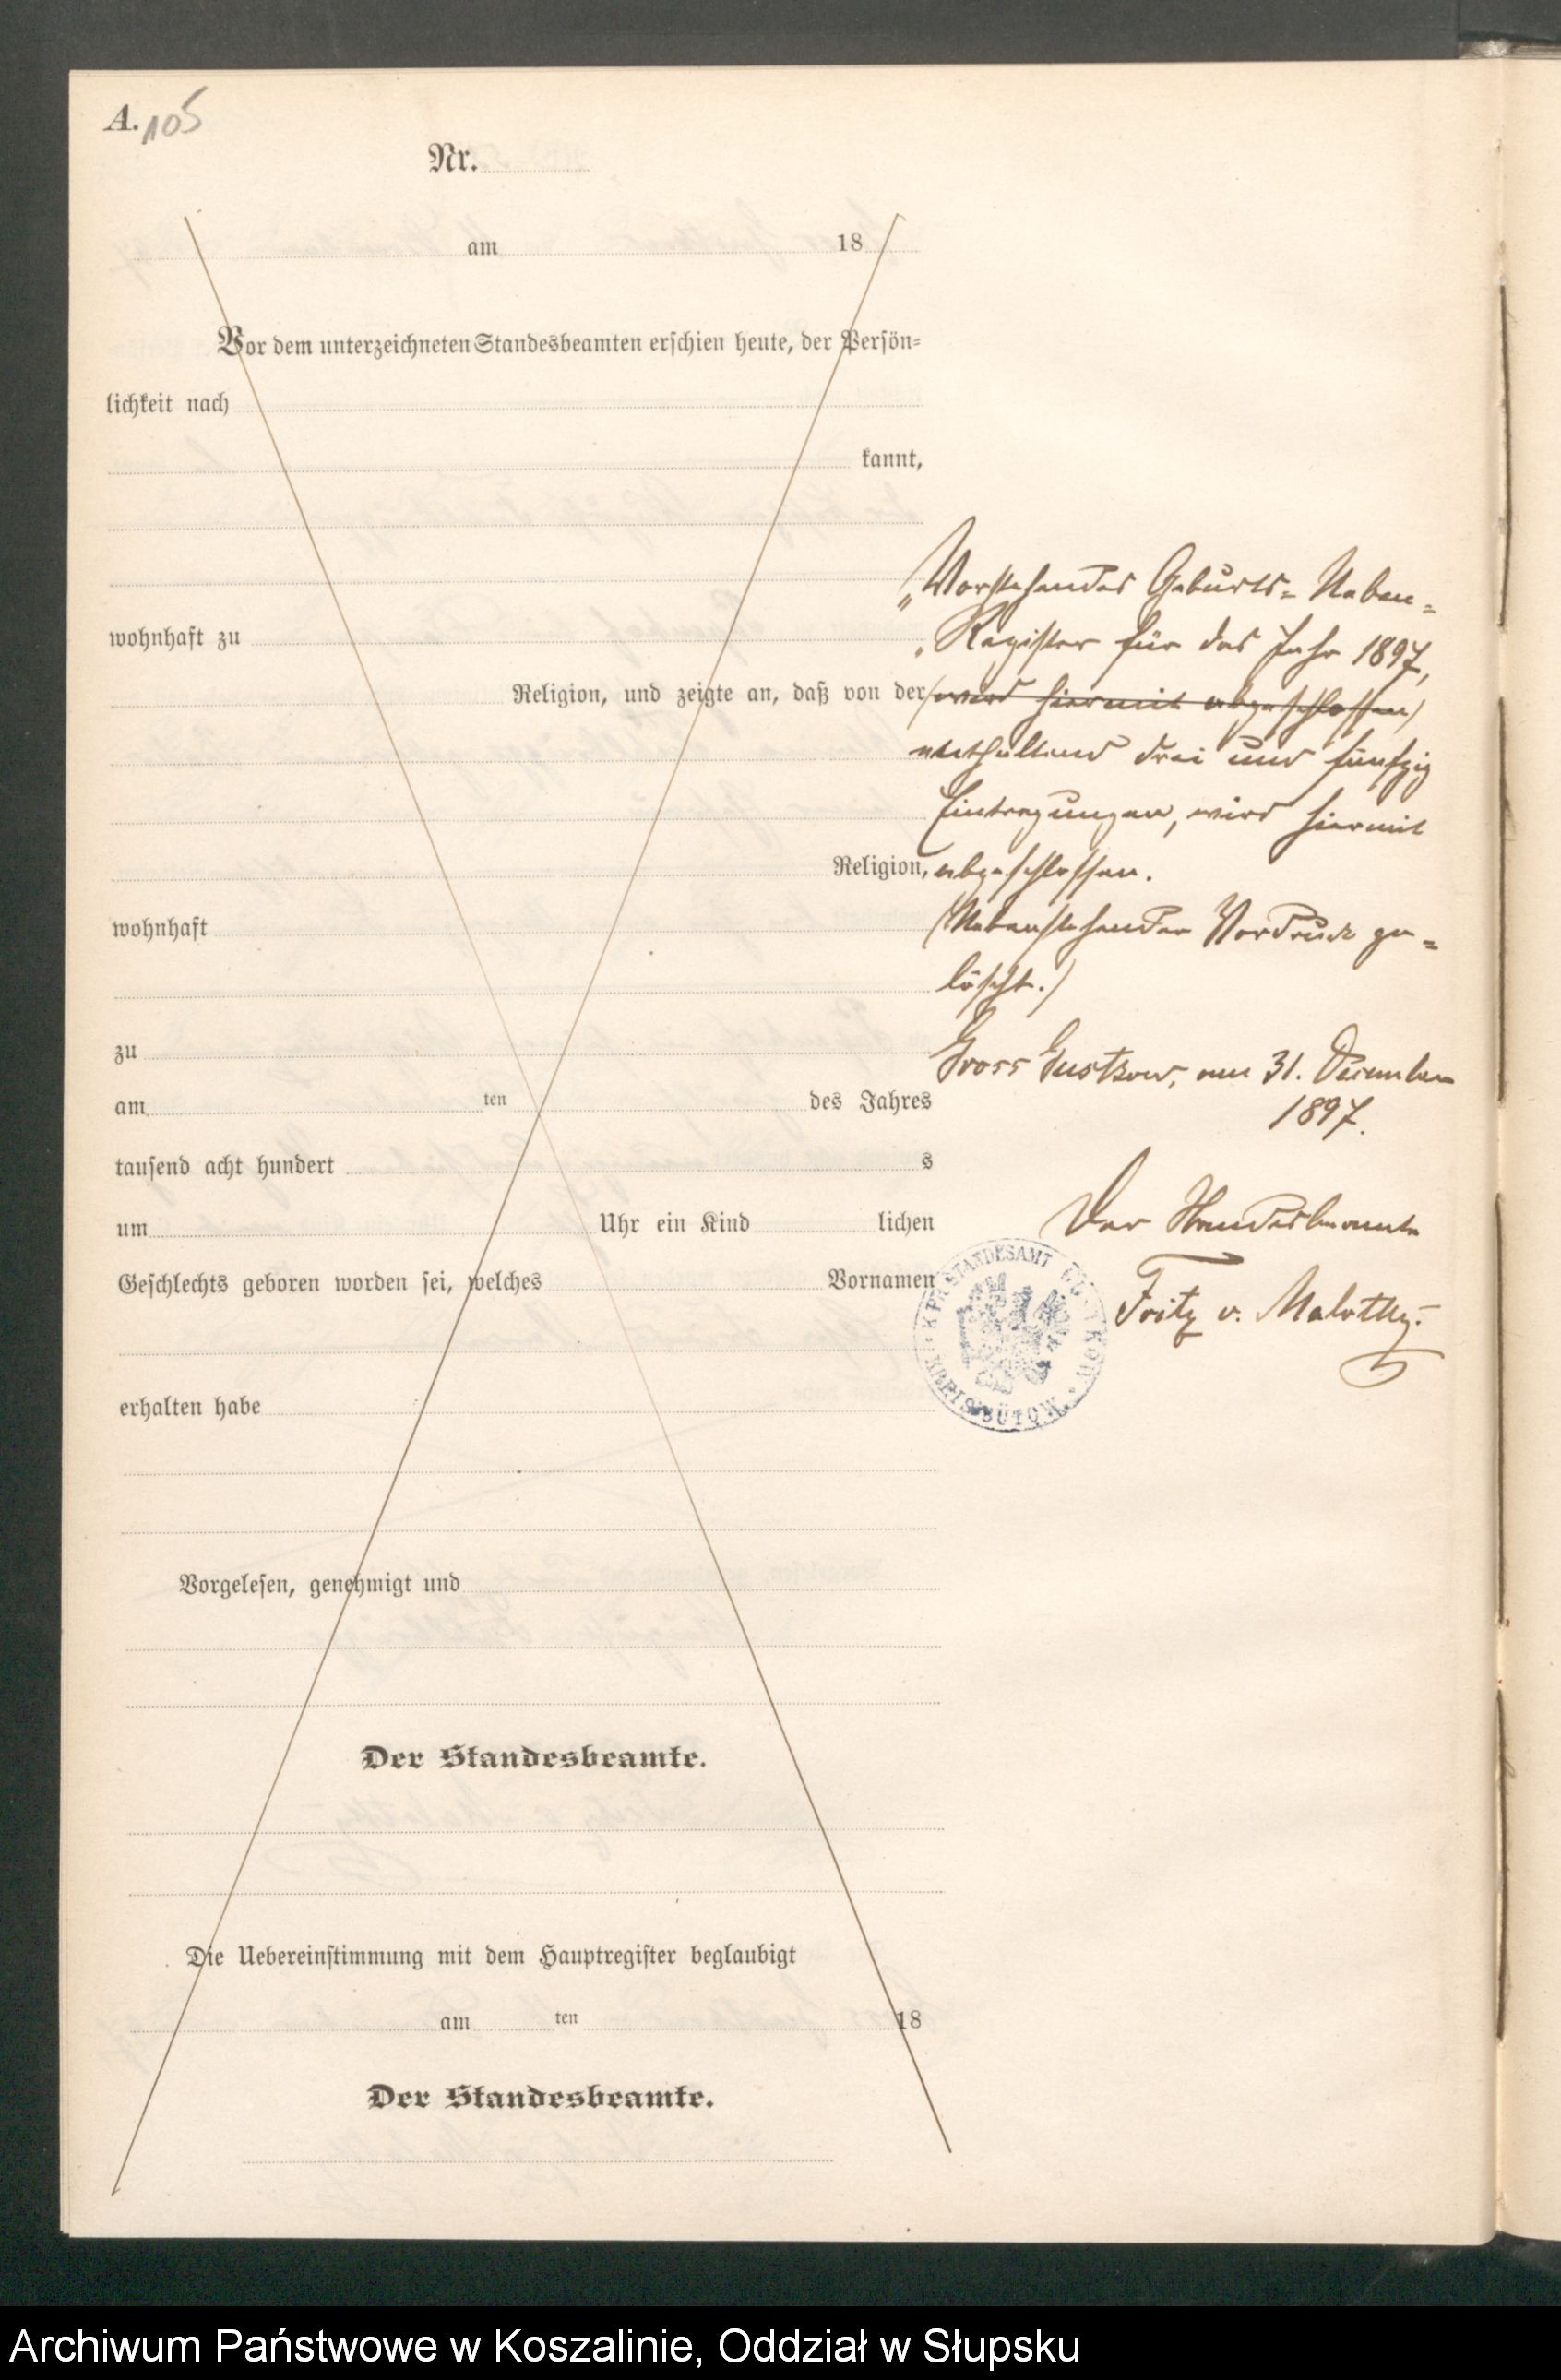 A. 105
Nr.
am 18
Vor dem unterzeichneten Standesbeamten erschien heute, der Persön-
lichkeit nach
kannt,
wohnhaft zu
Religion, und zeigte an, daß von der
Religion,
wohnhaft
zu
am ten des Jahres
tausend acht hundert s
um Uhr ein Kind lichen
Geschlechts geboren worden sei, welches Vornamen
erhalten habe
Vorgelesen, genehmigt und
Der Standesbeamte.
Die Uebereinstimmung mit dem Hauptregister beglaubigt
am ten 18
Der Standesbeamte.
„Vorstehendes Geburts-Neben-
Register für das Jahr 1897,
(wird hiermit abgeschlossen)
enthaltend drei und fünfzig
Eintragungen, wird hiermit
abgeschlossen.
(Nebenstehender Vordruck ge-
löscht.)
Gross Gustkow, am 31. Dezember
1897.
Der Standesbeamte
Fritz v. Malottky.
KPR. STANDESAMT KOW.
KREIS BÜTOW
Archiwum Państwowe w Koszalinie, Oddział w Słupsku